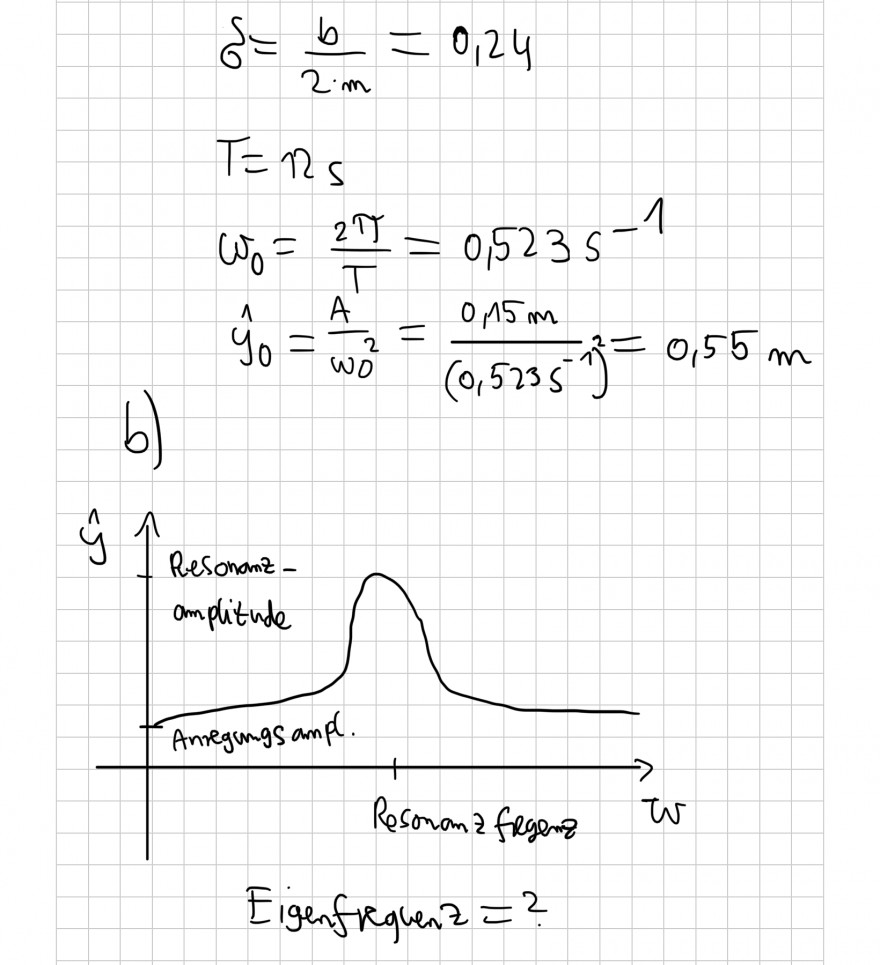 δ = b / (2·m) = 0,24
T = 12 s
ω₀ = 2π / T = 0,523 s⁻¹
ŷ₀ = A / ω₀² = 0,15 m / (0,523 s⁻¹)² = 0,55 m
b)
ŷ
Resonanz-
amplitude
Anregungsampl.
ω
Resonanzfreqenz
Eigenfrequenz = ?